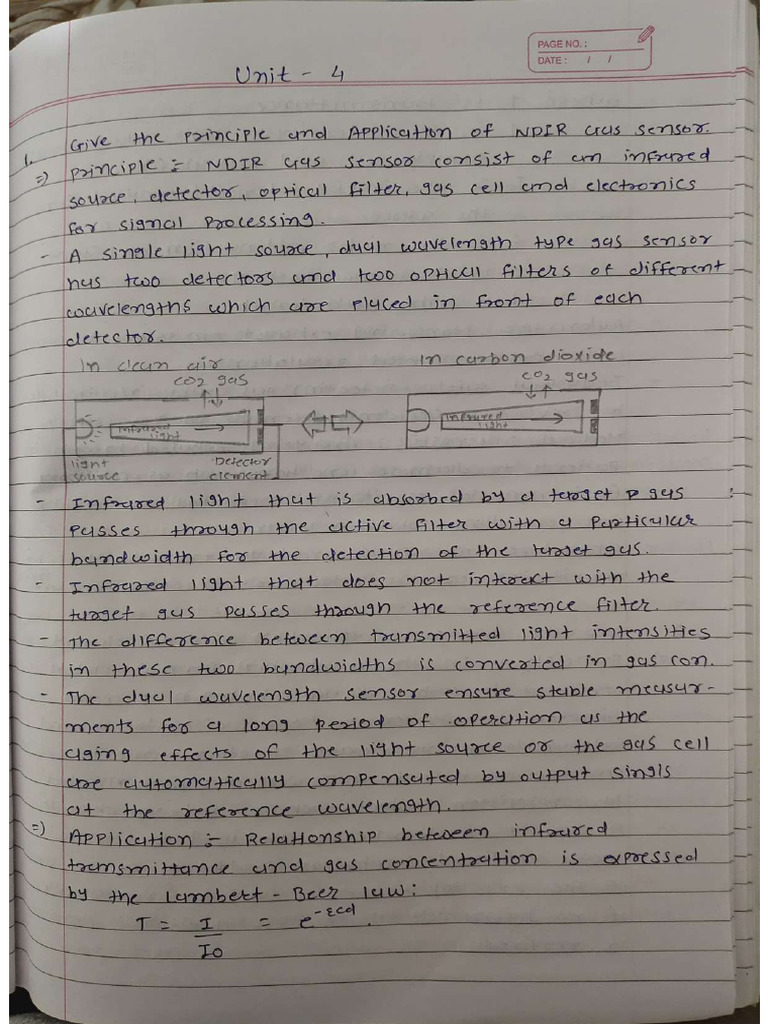 PAGE NO. :
DATE : / /
Unit - 4
1. Give the Principle and Application of NDIR Gas sensor.
=) Principle :- NDIR Gas sensor consist of an infrared
source, detector, optical filter, gas cell and electronics
for signal Processing.
- A single light source, dual wavelength type gas sensor
has two detectors and two optical filters of different
wavelengths which are placed in front of each
detector.
In clean air
In carbon dioxide
CO2 gas
CO2 gas
Infrared light
Infrared light
light source
Detector element
- Infrared light that is absorbed by a target p gas
passes through the active filter with a particular
bandwidth for the detection of the target gas.
- Infrared light that does not interact with the
target gas passes through the reference filter.
- The difference between transmitted light intensities
in these two bandwidths is converted in gas con.
- The dual wavelength sensor ensure stable measur-
ments for a long period of operation as the
aging effects of the light source or the gas cell
are automatically compensated by output singls
at the reference wavelength.
=) Application :- Relationship between infrared
transmittance and gas concentration is expressed
by the Lambert - Beer law:
T = I / I0 = e^-εcd.